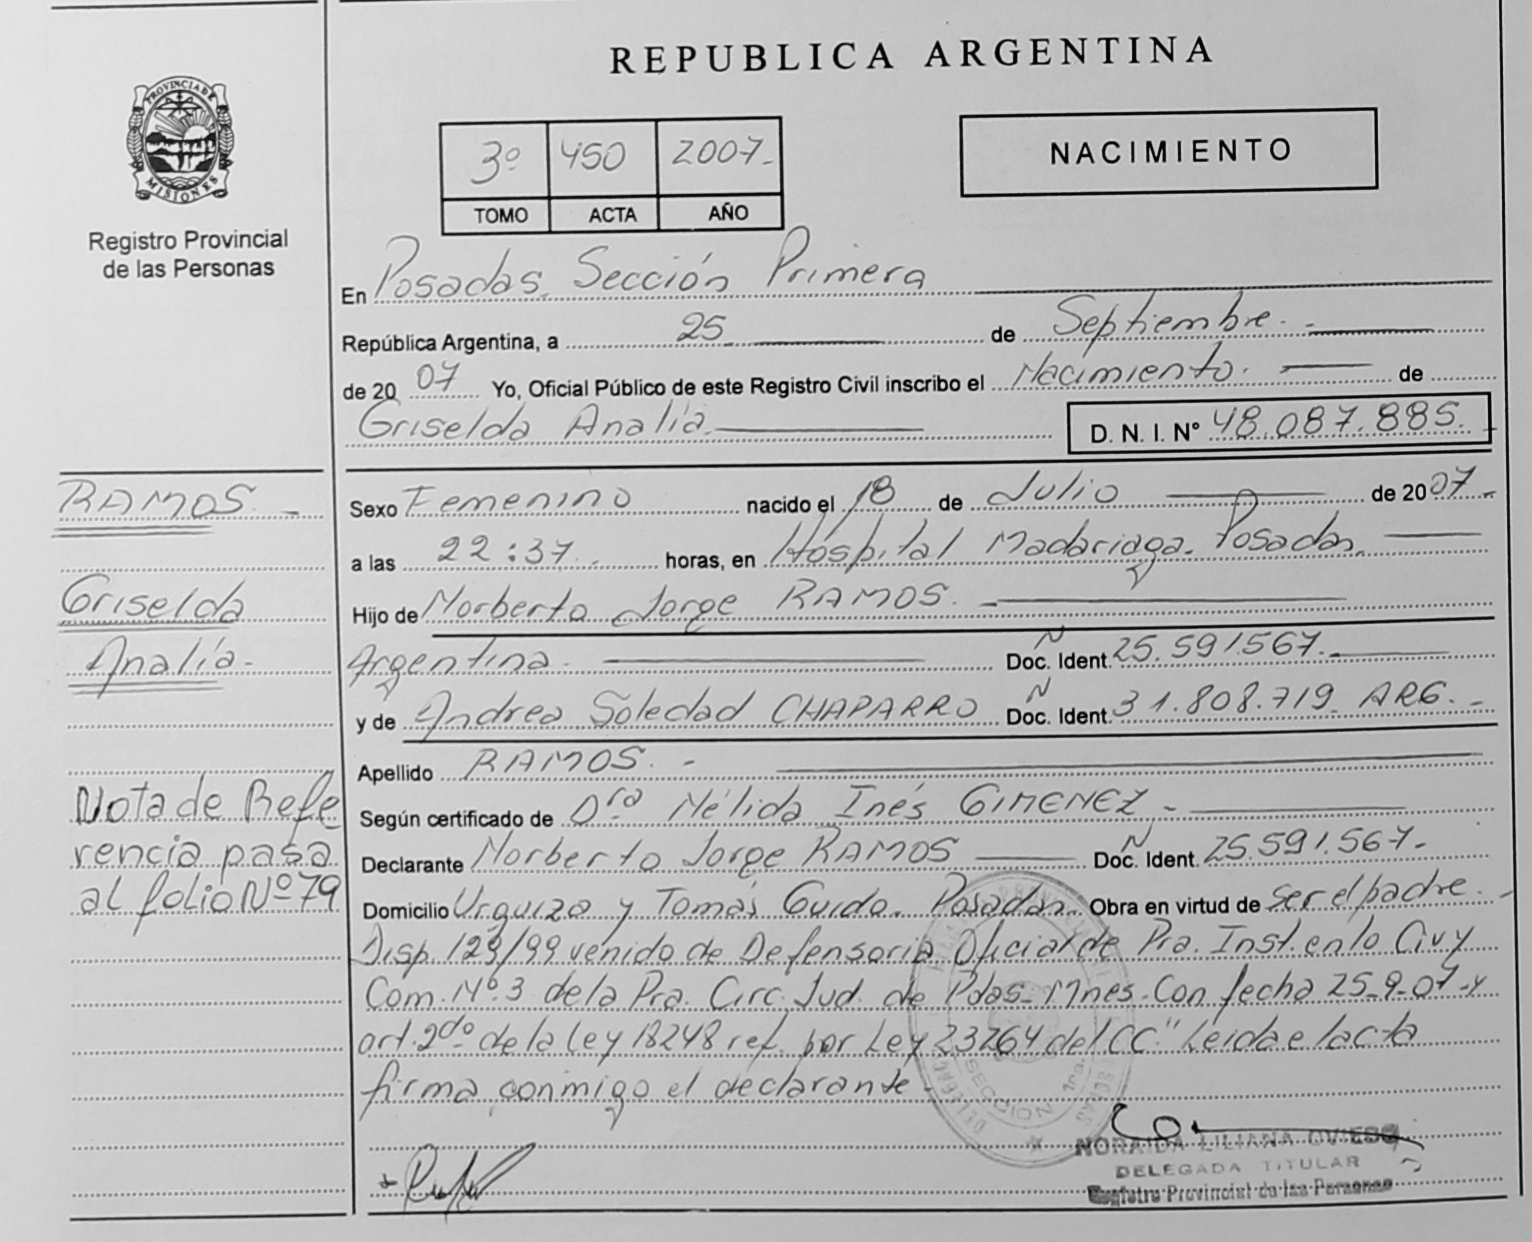 REPUBLICA ARGENTINA
PROVINCIA DE
MISIONES
Registro Provincial
de las Personas
3º 450 2007.-
TOMO ACTA AÑO
NACIMIENTO
En Posadas. Sección Primera
República Argentina, a 25 de Septiembre.-
de 20 07 Yo, Oficial Público de este Registro Civil inscribo el Nacimiento. de
Griselda Analía D. N. I. Nº 48.087.885.-
RAMOS.-
Griselda
Analía.-
Sexo Femenino nacido el 18 de Julio de 20 07.-
a las 22:37.- horas, en Hospital Madariaga. Posadas.
Hijo de Norberto Jorge RAMOS.-
Argentina. Doc. Ident. Nº 25.591.567.-
y de Andrea Soledad CHAPARRO Doc. Ident. Nº 31.808.719 ARG.-
Apellido RAMOS.-
Según certificado de Dra Nélida Inés GIMENEZ.-
Declarante Norberto Jorge RAMOS Doc. Ident. Nº 25.591.567.-
Domicilio Urquiza y Tomás Guido. Posadas. Obra en virtud de ser el padre.-
Nota de Refe
rencia pasa
al folio Nº 79
Disp. 129/99 venido de Defensoria Oficial de Pra. Inst. en lo Civ y
Com. Nº 3 de la Pra. Circ. Jud. de Pdas. Mnes. Con fecha 25-9-07 y
art. 2do de la Ley 18248 ref. por Ley 23264 del CC." Leida el acta
firma conmigo el declarante.
SECCION 1ra.
NORAIDA LILIANA OVIEDO
DELEGADA TITULAR
Registro Provincial de las Personas